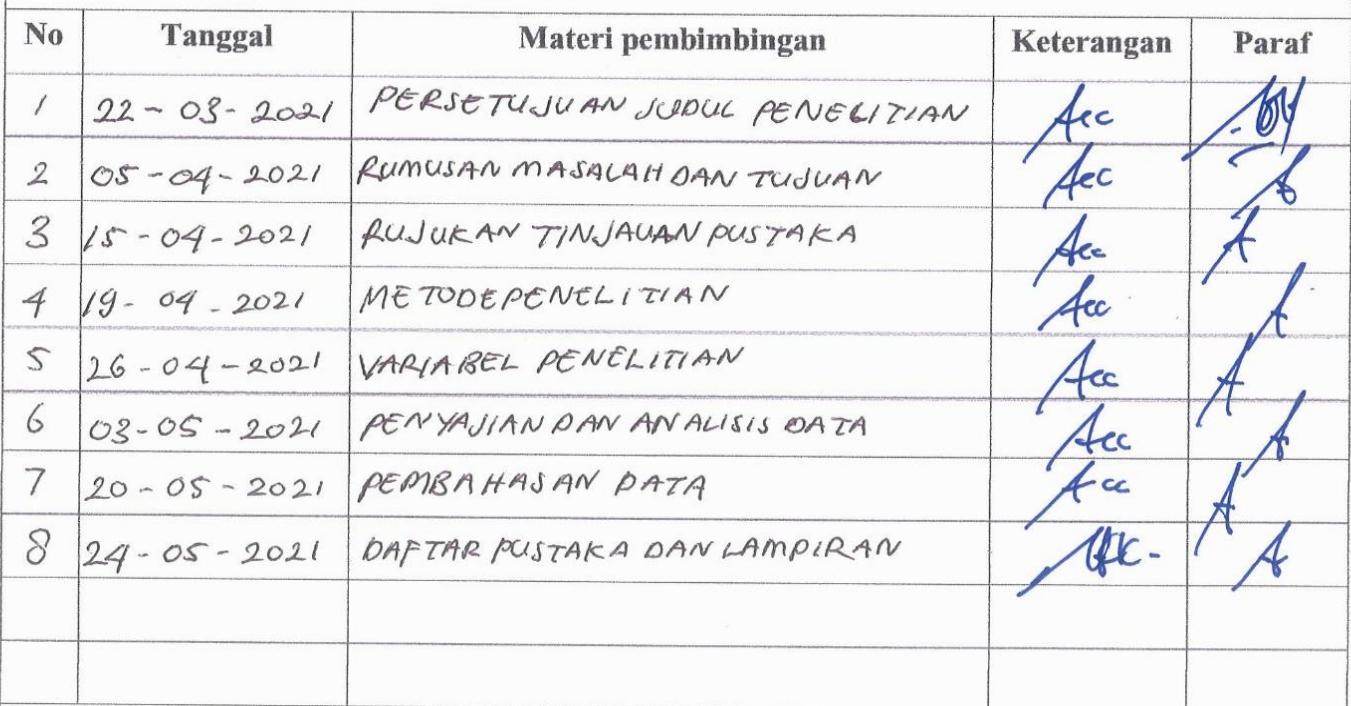 No Tanggal Materi pembimbingan Keterangan Paraf
1 22-03-2021 PERSETUJUAN JUDUL PENELITIAN Acc
2 05-04-2021 RUMUSAN MASALAH DAN TUJUAN Acc
3 15-04-2021 RUJUKAN TINJAUAN PUSTAKA Acc
4 19-04-2021 METODE PENELITIAN Acc
5 26-04-2021 VARIABEL PENELITIAN Acc
6 03-05-2021 PENYAJIAN DAN ANALISIS DATA Acc
7 20-05-2021 PEMBAHASAN DATA Acc
8 24-05-2021 DAFTAR PUSTAKA DAN LAMPIRAN